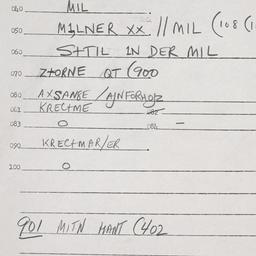 040 MIL
050 MILNER XX // MIL (108 (1
060 S+TIL IN DER MIL
070 ZTORNE QT (900
080 AXSANKE /
061 KRECTME 082
083 O 084 –
090 KRECTMAR/ER
100 O
901 MITN HANT (402